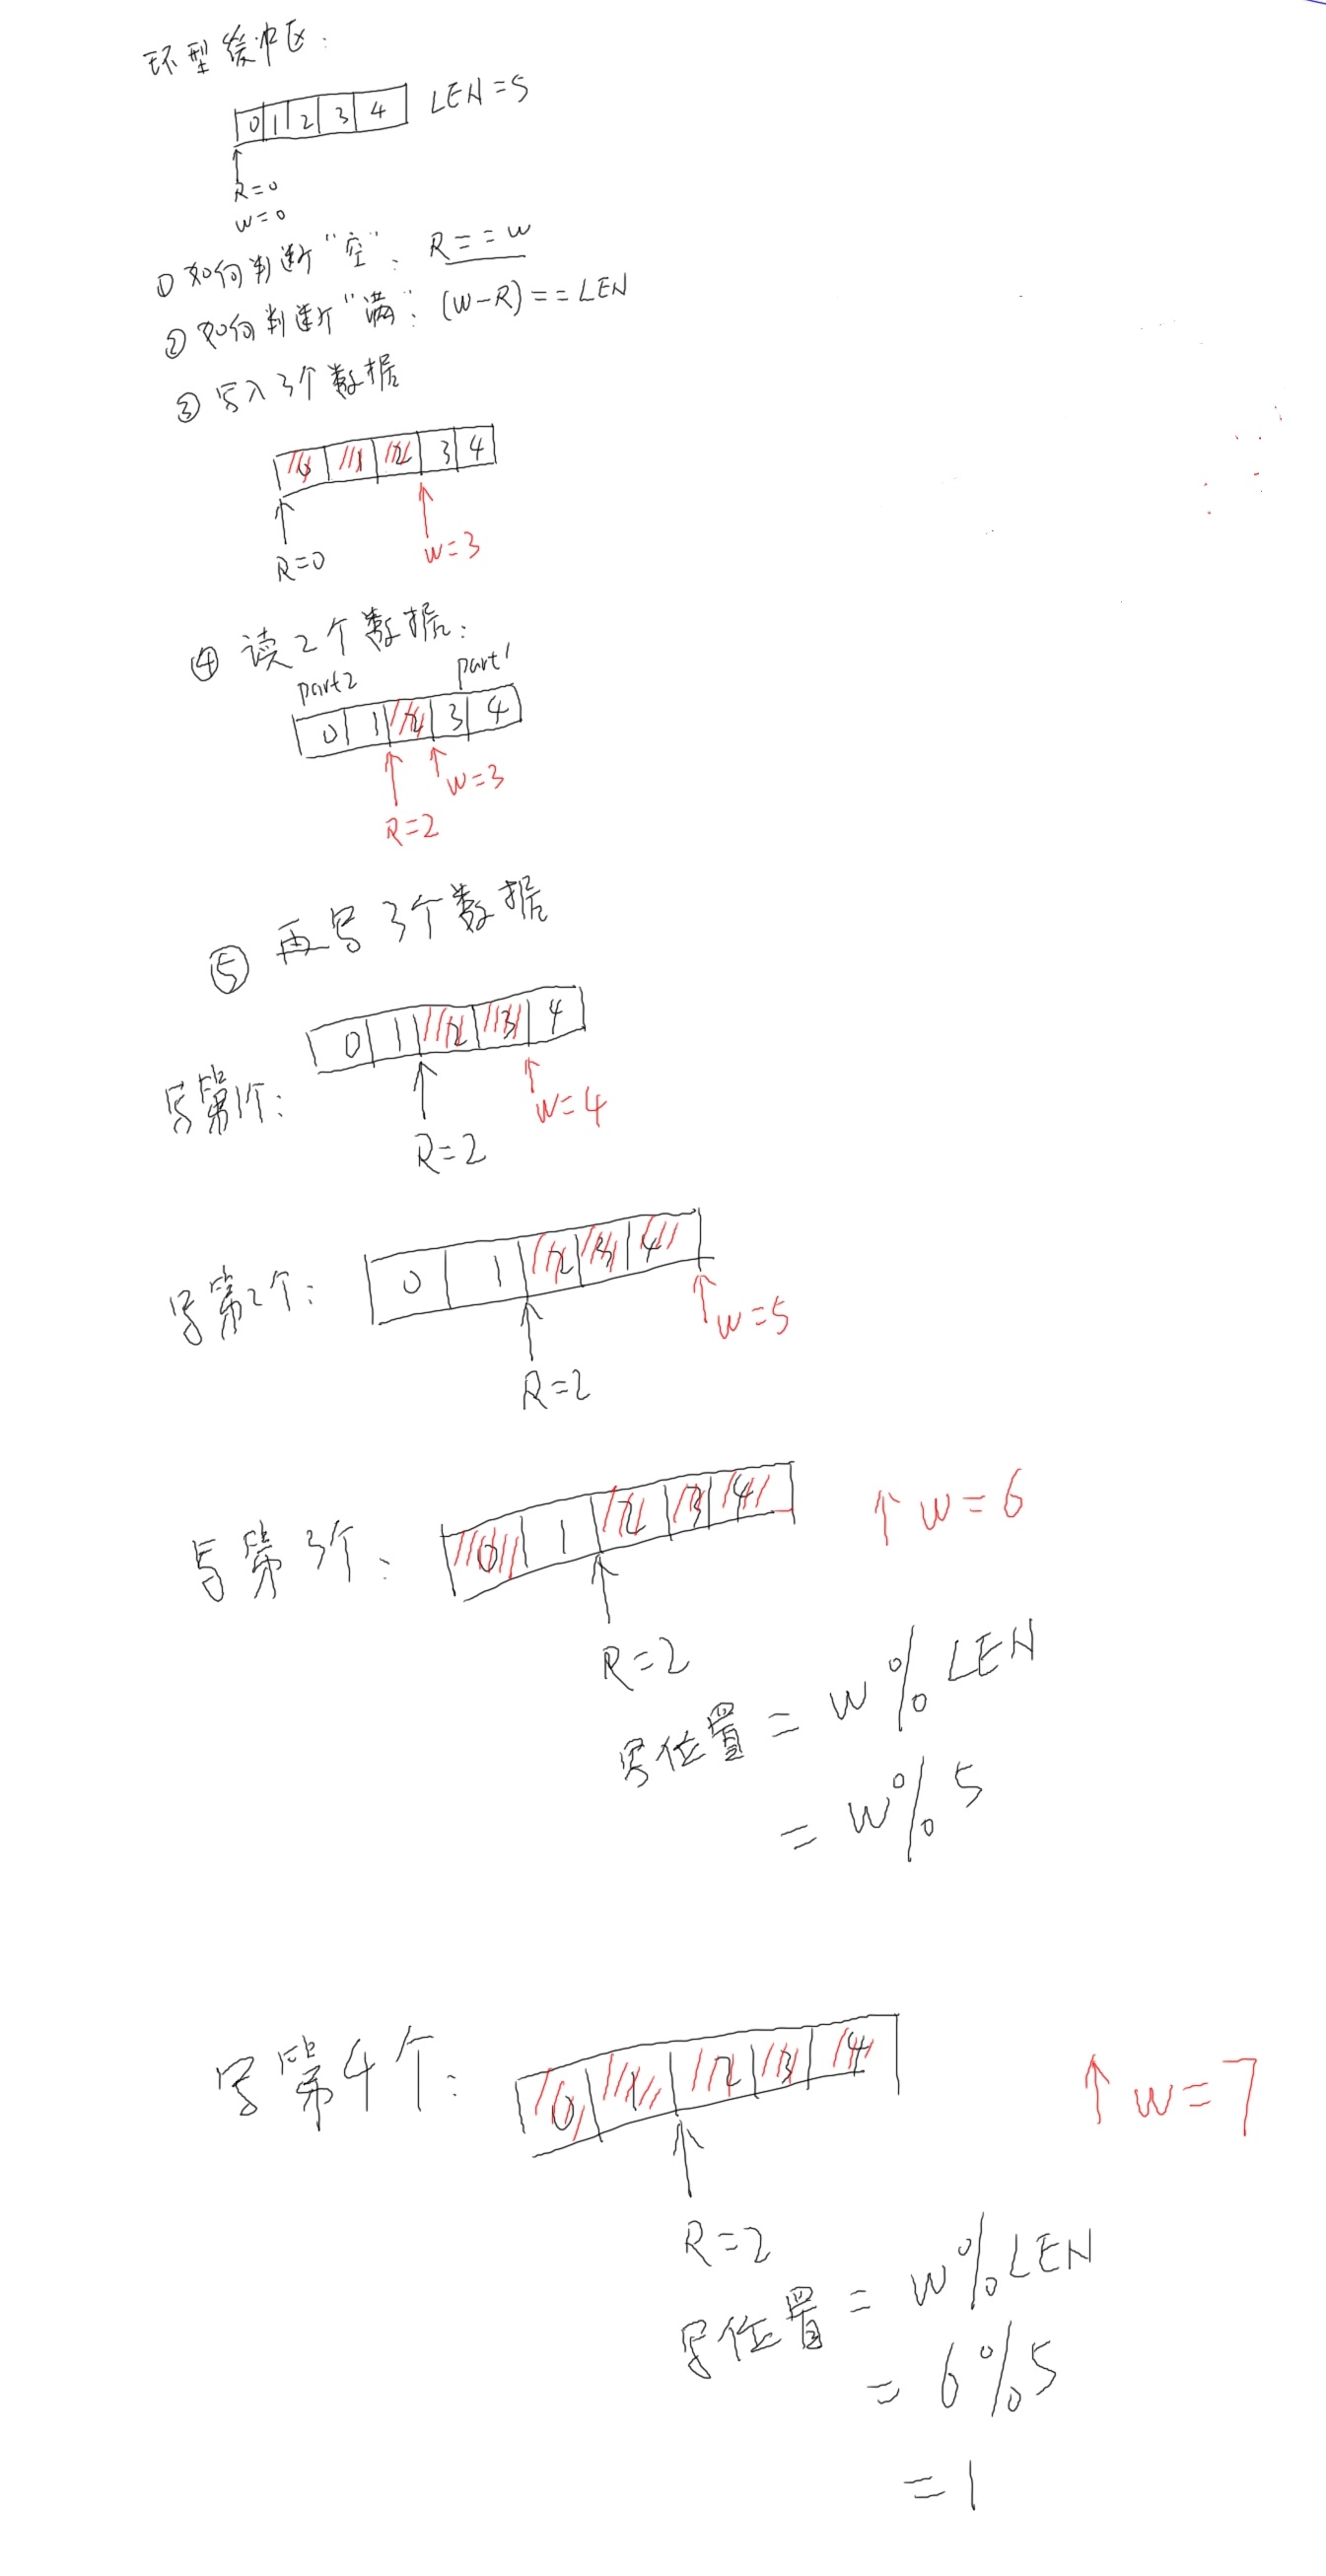 环型缓冲区:
0 1 2 3 4 LEN=5
R=0
W=0
① 如何判断"空": R==W
② 如何判断"满": (W-R)==LEN
③ 写入3个数据
0 1 2 3 4
R=0 W=3
④ 读2个数据:
part2 part1
0 1 2 3 4
W=3
R=2
⑤ 再写3个数据
写第1个: 0 1 2 3 4
W=4
R=2
写第2个: 0 1 2 3 4
W=5
R=2
写第3个: 0 1 2 3 4 W=6
R=2
写位置=W%LEN
=W%5
写第4个: 0 1 2 3 4 W=7
R=2
写位置=W%LEN
=6%5
=1